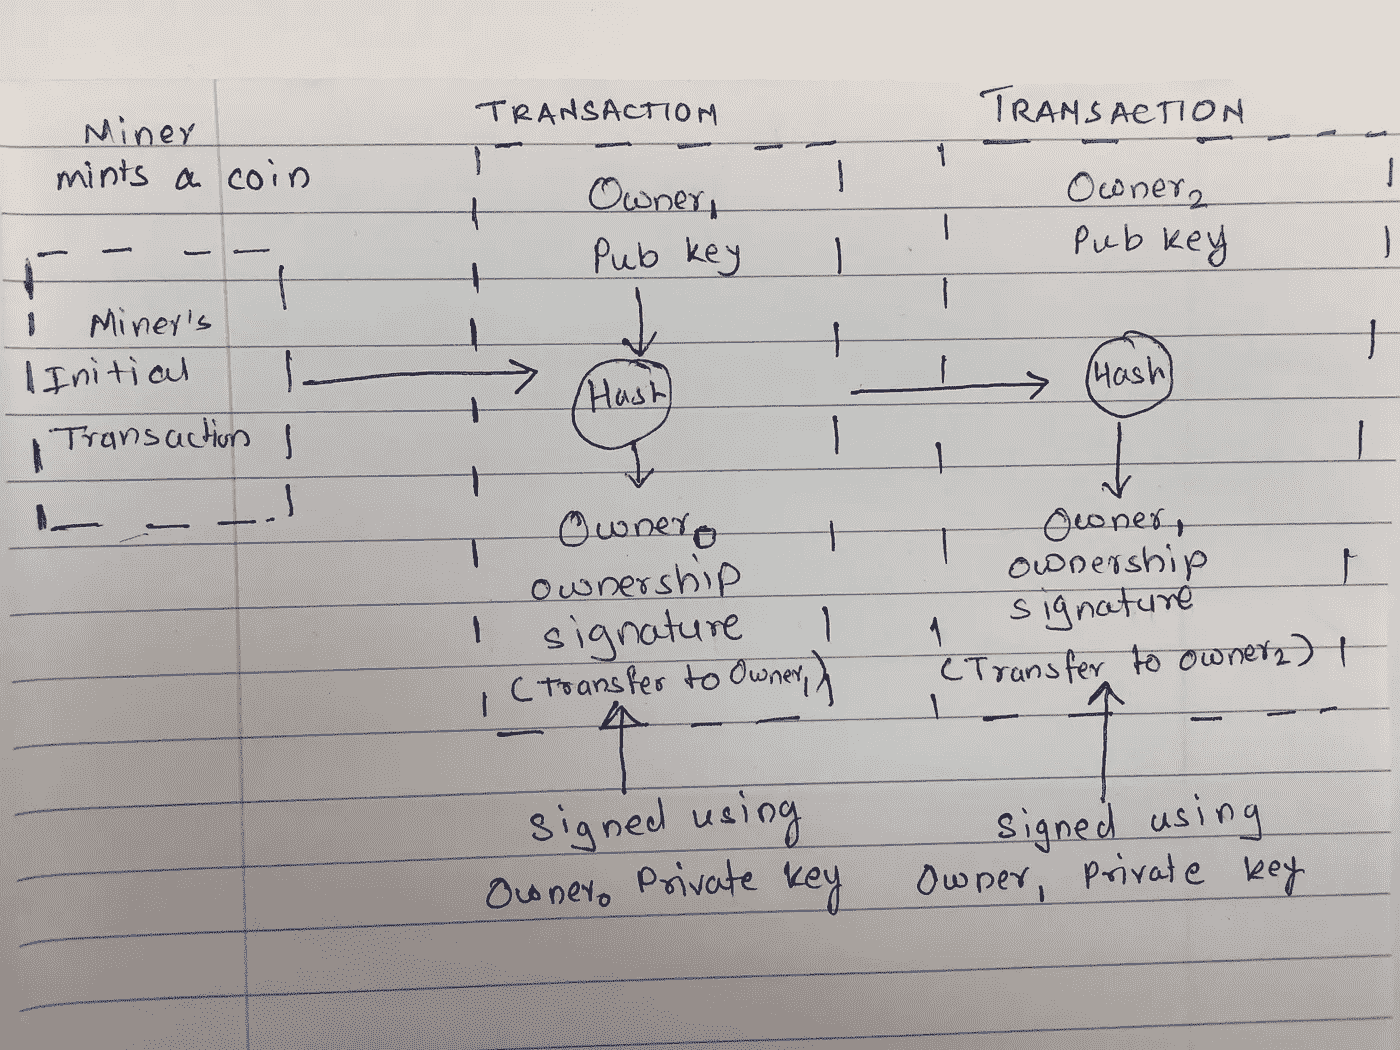 Miner
mints a coin
Miner's
Initial
Transaction
TRANSACTION
Owner₁
Pub key
Hash
Owner₀
ownership
signature
(Transfer to Owner₁)
Signed using
Owner₀ Private key
TRANSACTION
Owner₂
Pub key
Hash
Owner₁
ownership
signature
(Transfer to owner₂)
Signed using
Owner₁ Private key